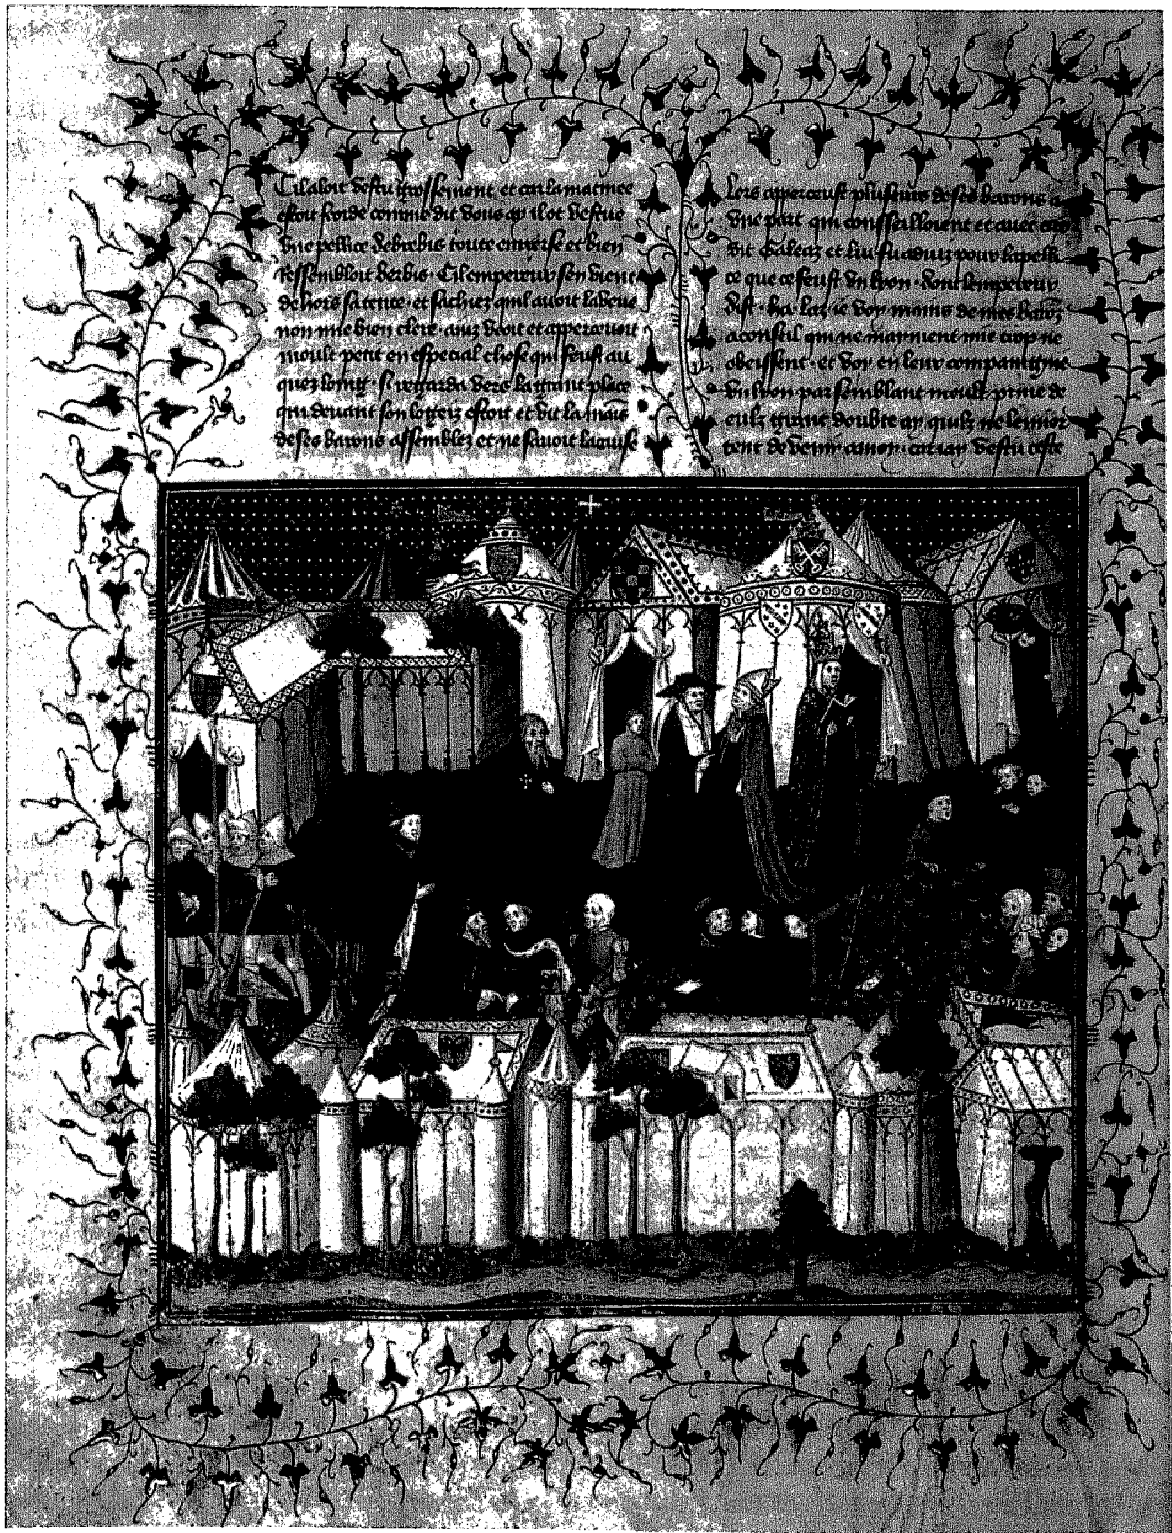 Cil aloit vestu grossement et car la matinee
estoit froide comme dit vous ay il ot vestue
vne pellice de brebis toute enuerse et bien
ressembloit berbis. Cil empereur sen vient
dehors sa tente. et sachiez quil auoit la veue
non mie bien clere. ainz veoit et apperceuoit
moult petit en especial chose qui feust au
quez loing. si regarda vers la grant place
qui deuant son logeiz estoit et vit la mais
de ses barons assemblez et ne sauoit la guise
Lors apperceust plusieurs de ses barons a
vne part qui conseilloient et auec
vit Galeaz et lui fu aduiz pour la pelli
ce que ce feust vn lyon. dont lempereur
dist. ha laz ie voy mains de mes barons
a conseil qui ne maiment mie trop ne
obeissent. et voy en leur compaingnie
vn lyon par semblant moult
eulz grant doubte ay quilz ne lenuor
tent de venir a moy. car iay vestu ceste